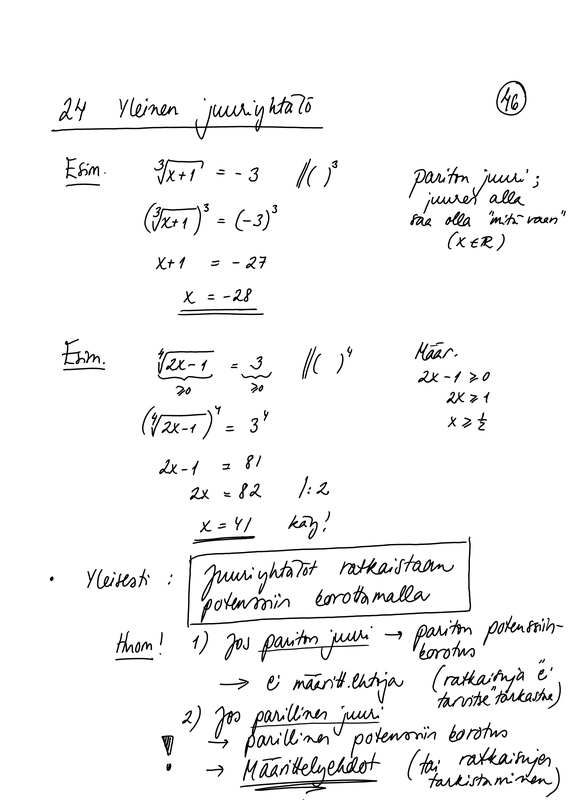 24 Yleinen juuriyhtälö
46
Esim. ∛(x+1) = -3 //( )³
(∛(x+1))³ = (-3)³
x+1 = -27
x = -28
pariton juuri;
juuren alla
saa olla "mitä vaan"
(x ∈ ℝ)
Esim. ∜(2x-1) = 3 //( )⁴
≥0 ≥0
(∜(2x-1))⁴ = 3⁴
2x-1 = 81
2x = 82 /:2
x = 41 käy!
Määr.
2x-1 ≥ 0
2x ≥ 1
x ≥ ½
• Yleisesti: Juuriyhtälöt ratkaistaan
potenssiin korottamalla
Huom! 1) Jos pariton juuri → pariton potenssiin-
korotus
→ ei määritt.ehtoja (ratkaisuja "ei
tarvitse" tarkastaa)
2) Jos parillinen juuri
! → parillinen potenssiin korotus
→ Määrittelyehdot (tai ratkaisujen
tarkistaminen)